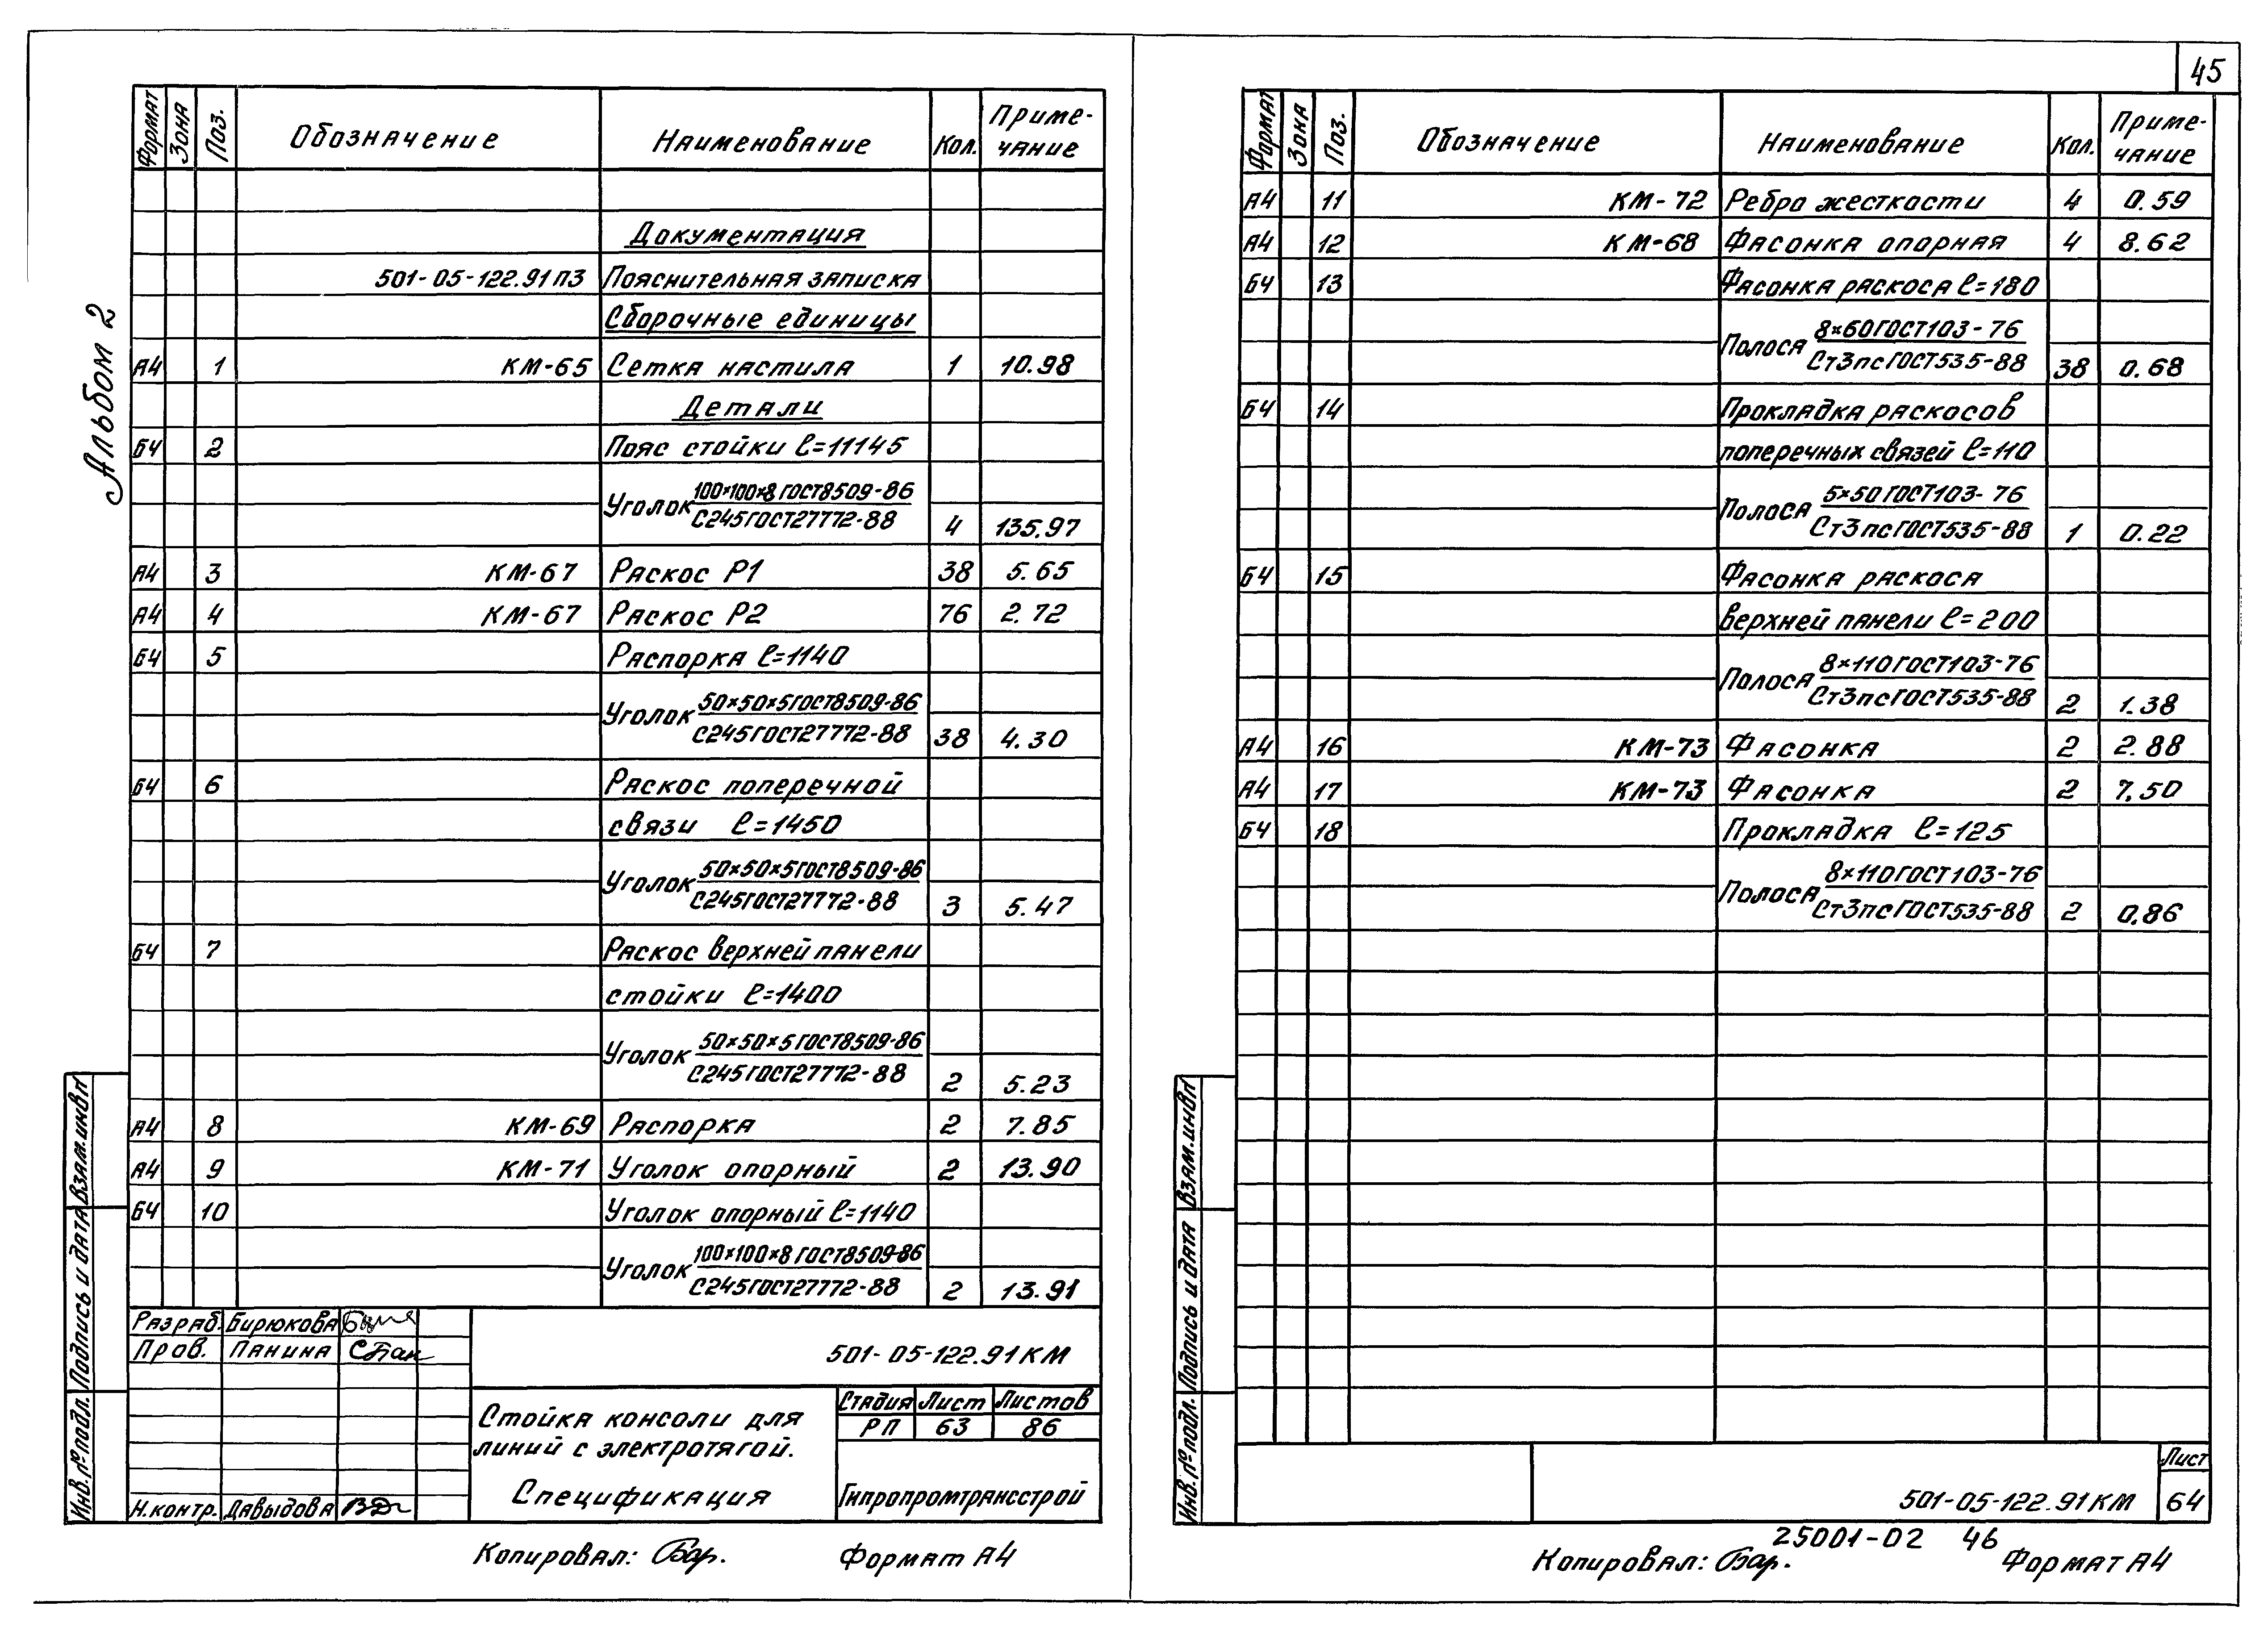 45
Альбом 2
Формат Зона Поз. Обозначение Наименование Кол. Приме-
чание
Документация
501-05-122.91ПЗ Пояснительная записка
Сборочные единицы
А4 1 КМ-65 Сетка настила 1 10.98
Детали
БЧ 2 Пояс стойки ℓ=11145
Уголок 100×100×8 ГОСТ8509-86
С245ГОСТ27772-88 4 135.97
А4 3 КМ-67 Раскос Р1 38 5.65
А4 4 КМ-67 Раскос Р2 76 2.72
БЧ 5 Распорка ℓ=1140
Уголок 50×50×5ГОСТ8509-86
С245ГОСТ27772-88 38 4.30
БЧ 6 Раскос поперечной
связи ℓ=1450
Уголок 50×50×5ГОСТ8509-86
С245ГОСТ27772-88 3 5.47
БЧ 7 Раскос верхней панели
стойки ℓ=1400
Уголок 50×50×5 ГОСТ8509-86
С245ГОСТ27772-88 2 5.23
А4 8 КМ-69 Распорка 2 7.85
А4 9 КМ-71 Уголок опорный 2 13.90
БЧ 10 Уголок опорный ℓ=1140
Уголок 100×100×8 ГОСТ8509-86
С245ГОСТ27772-88 2 13.91
Разраб. Бирюкова
Пров. Панина
Н.контр. Давыдова
501-05-122.91КМ
Стойка консоли для
линий с электротягой.
Спецификация
Стадия Лист Листов
РП 63 86
Гипропромтрансстрой
Инв.№подл. Подпись и дата Взам.инв№
Копировал: Бар. Формат А4
Формат Зона Поз. Обозначение Наименование Кол. Приме-
чание
А4 11 КМ-72 Ребро жесткости 4 0.59
А4 12 КМ-68 Фасонка опорная 4 8.62
БЧ 13 Фасонка раскоса ℓ=180
Полоса 8×60ГОСТ103-76
Ст3псГОСТ535-88 38 0.68
БЧ 14 Прокладка раскосов
поперечных связей ℓ=110
Полоса 5×50ГОСТ103-76
Ст3псГОСТ535-88 1 0.22
БЧ 15 Фасонка раскоса
верхней панели ℓ=200
Полоса 8×110ГОСТ103-76
Ст3псГОСТ535-88 2 1.38
А4 16 КМ-73 Фасонка 2 2.88
А4 17 КМ-73 Фасонка 2 7.50
БЧ 18 Прокладка ℓ=125
Полоса 8×110ГОСТ103-76
Ст3псГОСТ535-88 2 0.86
Инв.№подл. Подпись и дата Взам.инв№
501-05-122.91КМ
Лист
64
25001-02 46
Копировал: Бар. Формат А4